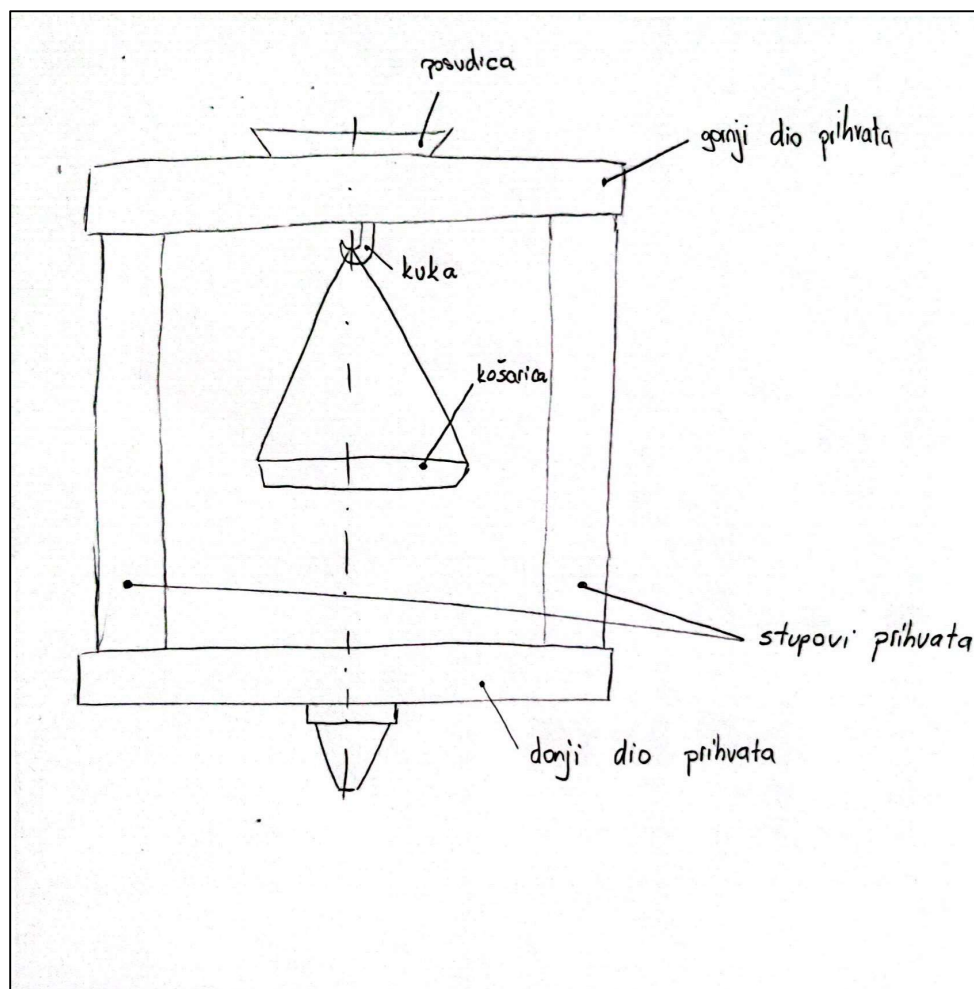 posudica
gornji dio prihvata
kuka
košarica
stupovi prihvata
donji dio prihvata